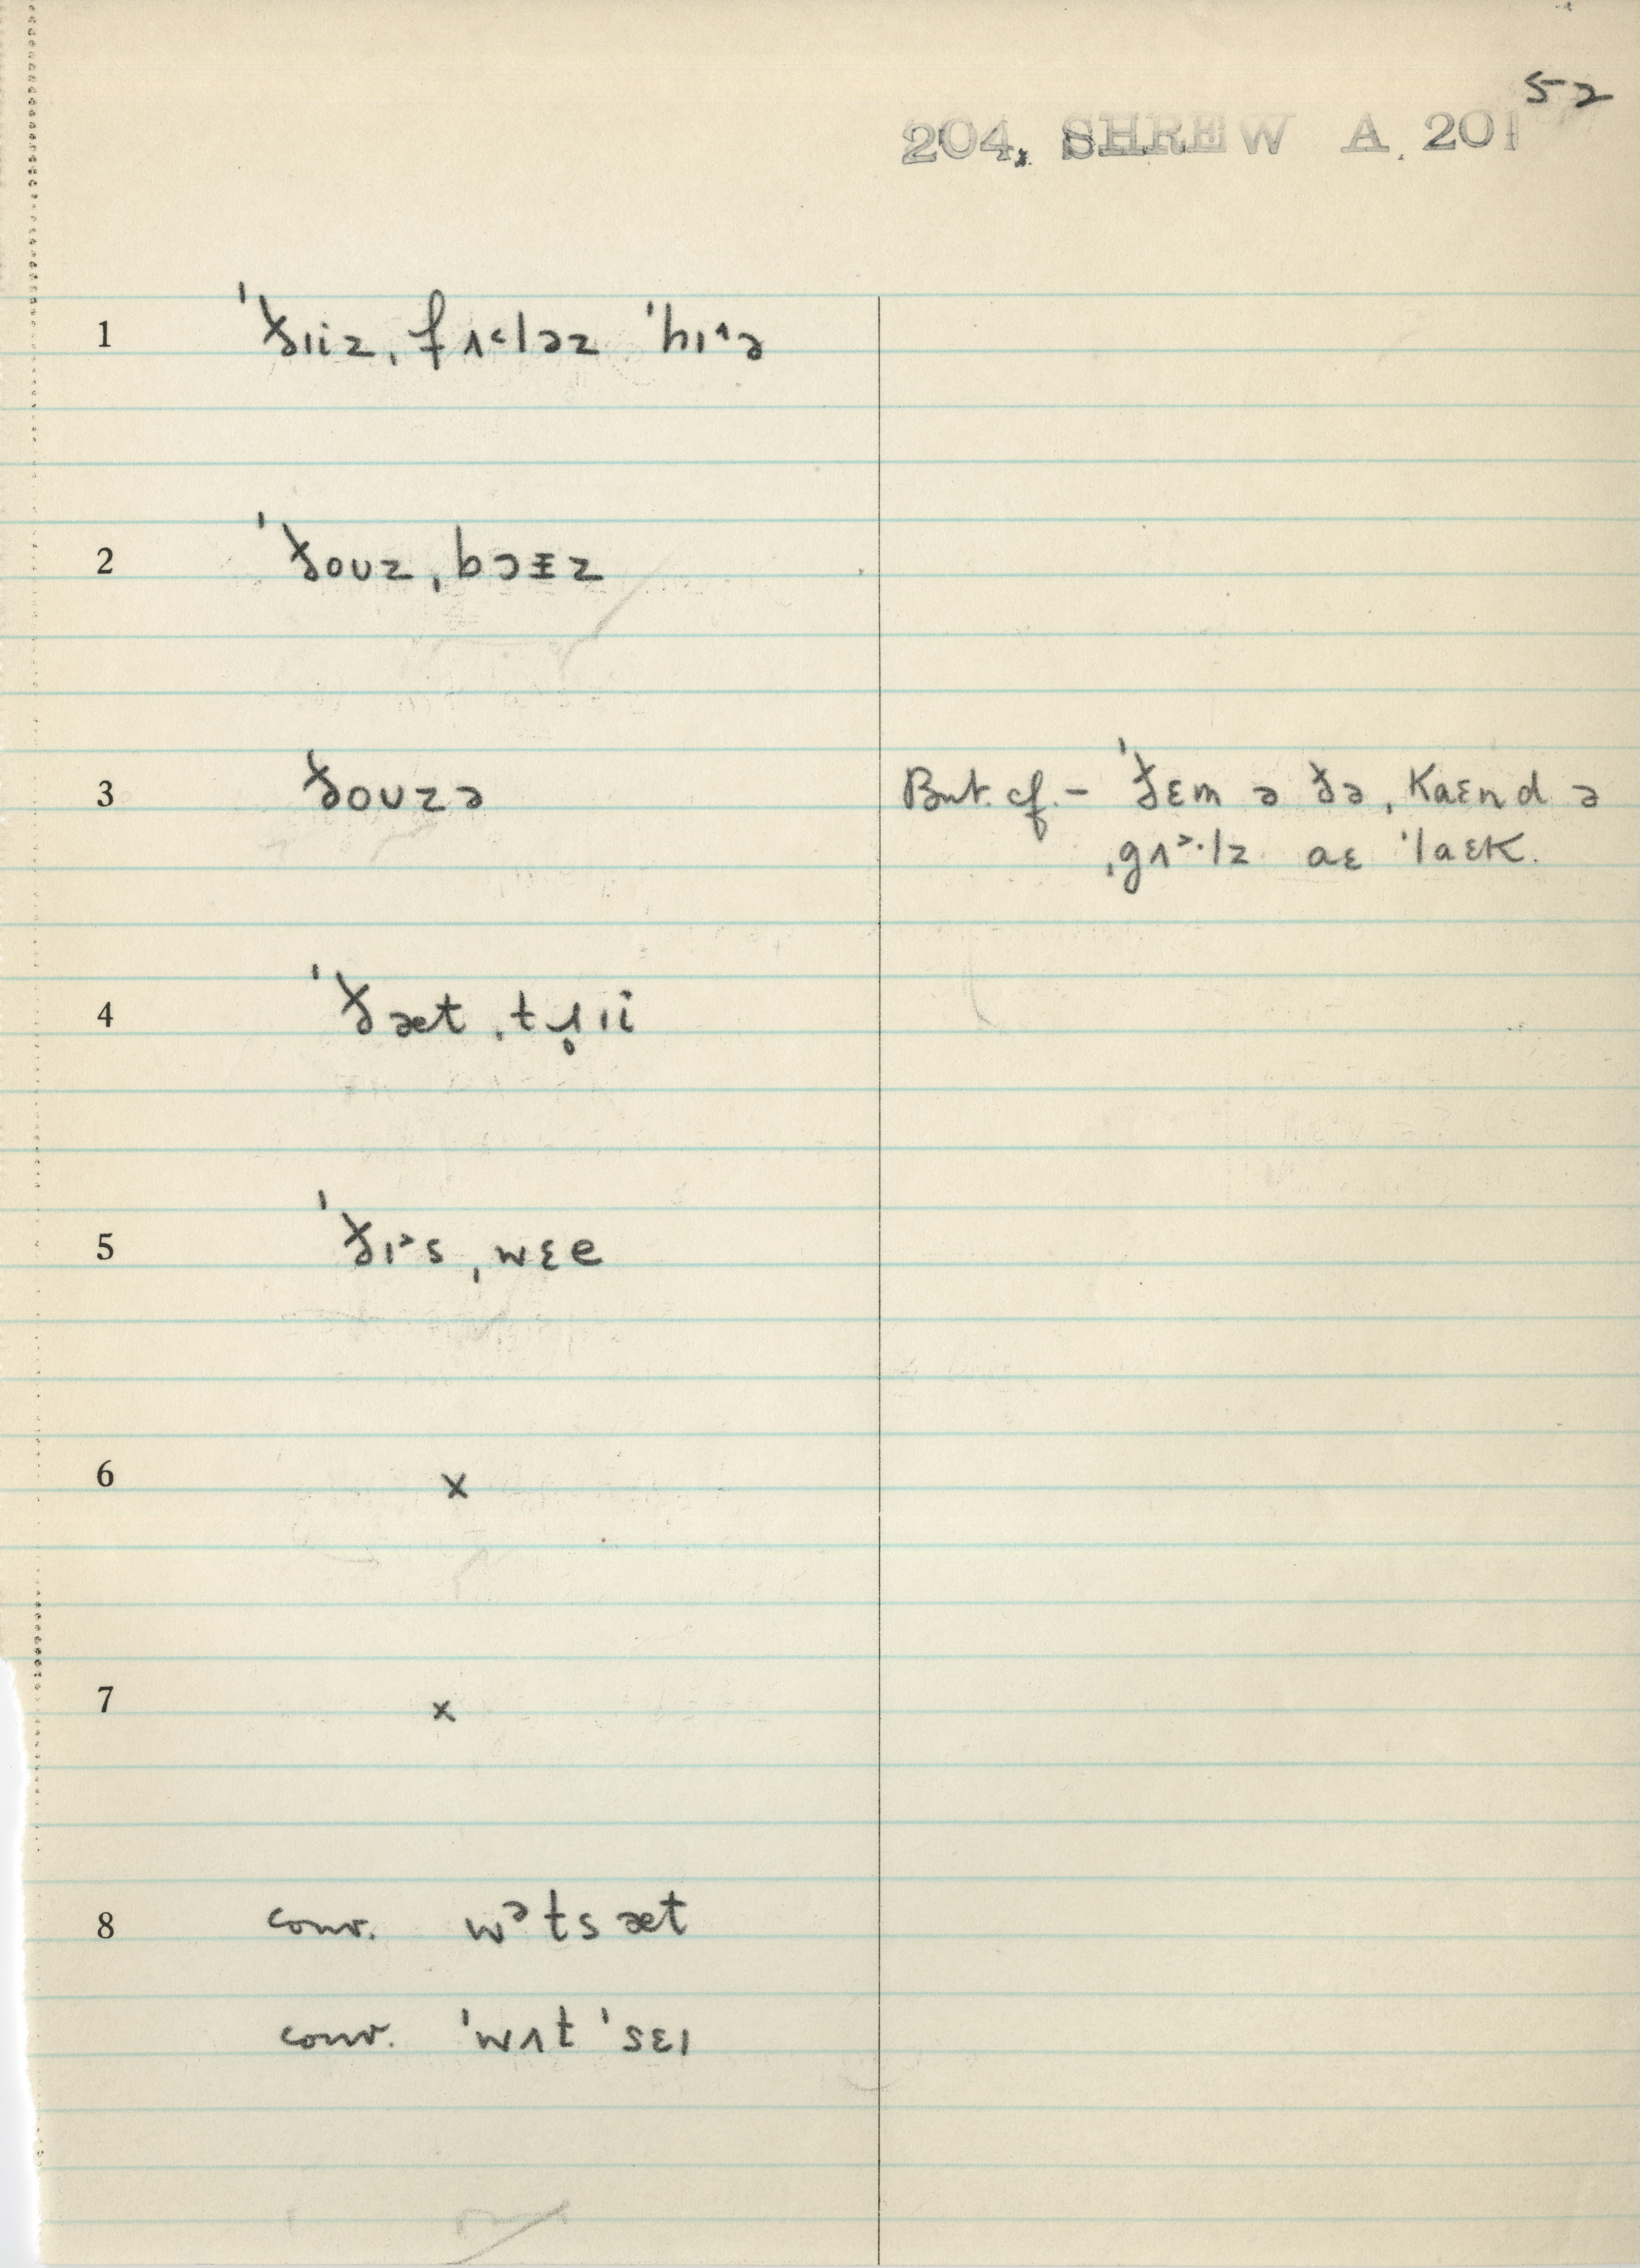 52
204, SHREW A. 201
1 ˈð̵ɪiz ˌfʌ˂ləz ˈhɪ˄ə
2 ˈðoʊz ˌbɔɪz
3 ðoʊzə
But cf. – ˈðɛm ə ðə ˌkaɛnd ə
ˌgʌ˃·lz aɛ ˈlaɛk.
4 ˈðæt ˌtɹ̥ɪi
5 ˈðɪ˃s ˌwɛe
6 x
7 x
8 conv. wᵊtsæt
conv. ˈwʌt ˈsɛɪ